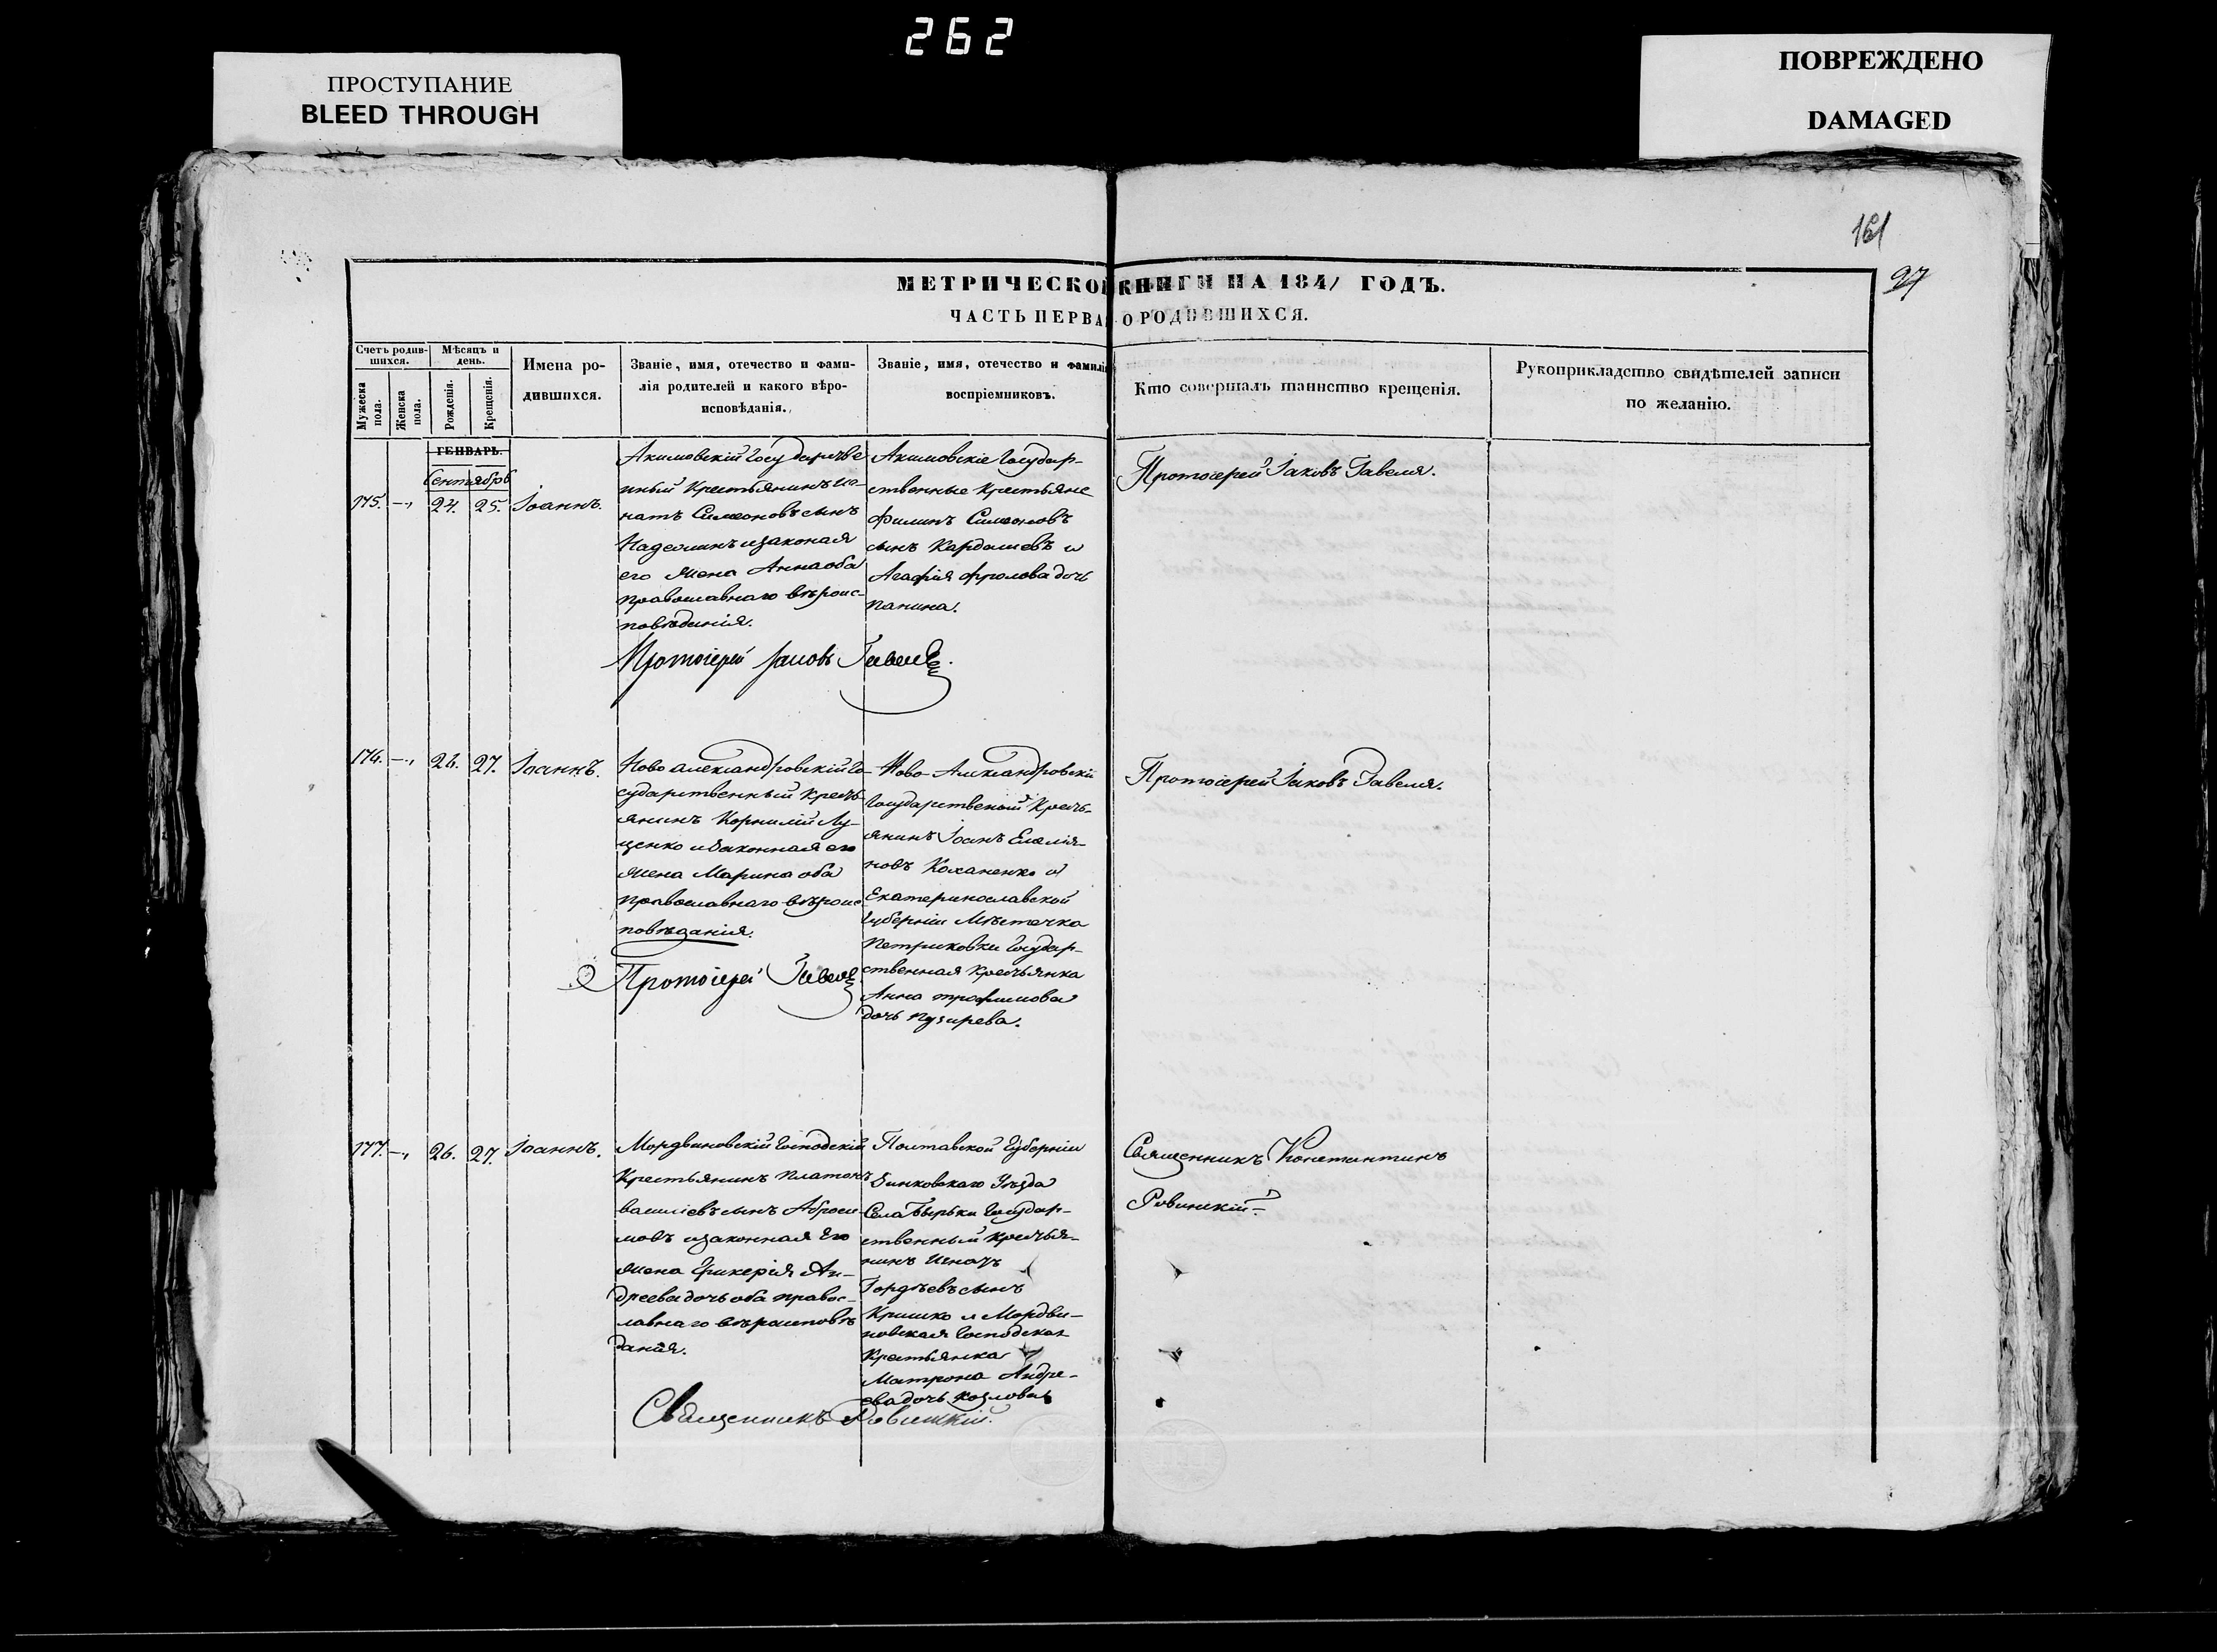 262
ПРОСТУПАНИЕ
BLEED THROUGH
ПОВРЕЖДЕНО
DAMAGED
161
97
МЕТРИЧЕСКОЙ КНИГИ НА 1841 ГОДЪ.
ЧАСТЬ ПЕРВА О РОДИВШИХСЯ.
Счетъ родив-
шихся.
Мужеска
пола.
Женска
пола.
Мѣсяцъ и
день.
Рожденія.
Крещенія.
Имена ро-
дившихся.
Званіе, имя, отечество и фами-
лія родителей и какого вѣро-
исповѣданія.
Званіе, имя, отечество и фамилія
воспріемниковъ.
Кто совершалъ таинство крещенія.
Рукоприкладство свидѣтелей записи
по желанію.
ГЕНВАРЬ.
Сентябрь
175. 24. 25. Іоаннъ.
Акимовскій Государстве
нный Крестьянинъ Иг-
натъ Симеоновъ сынъ
и законая
его жена Анна оба
православнаго вѣроис-
повѣданія.
Протоіерей Іаковъ Гавеля.
Акимовскіе Государ-
ственные Крестьяне
Филипъ Симеоновъ
сынъ Кардашевъ и
Агафія Фролова дочь
Панина.
Протоіерей Іаковъ Гавеля.
176. 26. 27. Іоаннъ.
Ново Александровскій Го-
сударственный Кресть-
янинъ Корнилій Лу-
ценко и законная его
жена Марина оба
православнаго вѣроис
повѣданія.
Протоіерей Гавеля
Ново-Александровскій
Государственый Кресть-
янинъ Іоанъ Емелія-
новъ Коханенко и
Екатеринославской
Губерніи Мѣстечка
Петриковки Государ-
ственная Крестьянка
Анна Трофимова
дочь Пузирева.
Протоіерей Іаковъ Гавеля.
177. 26. 27. Іоаннъ.
Мордвиновскій Господскій
Крестьянинъ Платонъ
Василіевъ сынъ Аброси-
мовъ и законная Его
жена Гликерія Ан-
дреева дочь оба правос-
лавнаго вѣроисповѣ
данія.
Священникъ Ровицкій.
Полтавской Губерніи
Зинковскаго Уѣзда
Села Государ-
ственный Крестья-
нинъ Игнатъ
Гордѣевъ сынъ
Кришко и Мордви-
новская Господская
Крестьянка
Матрона Андре-
ева дочь Козлова
Священникъ Константинъ
Ровицкій